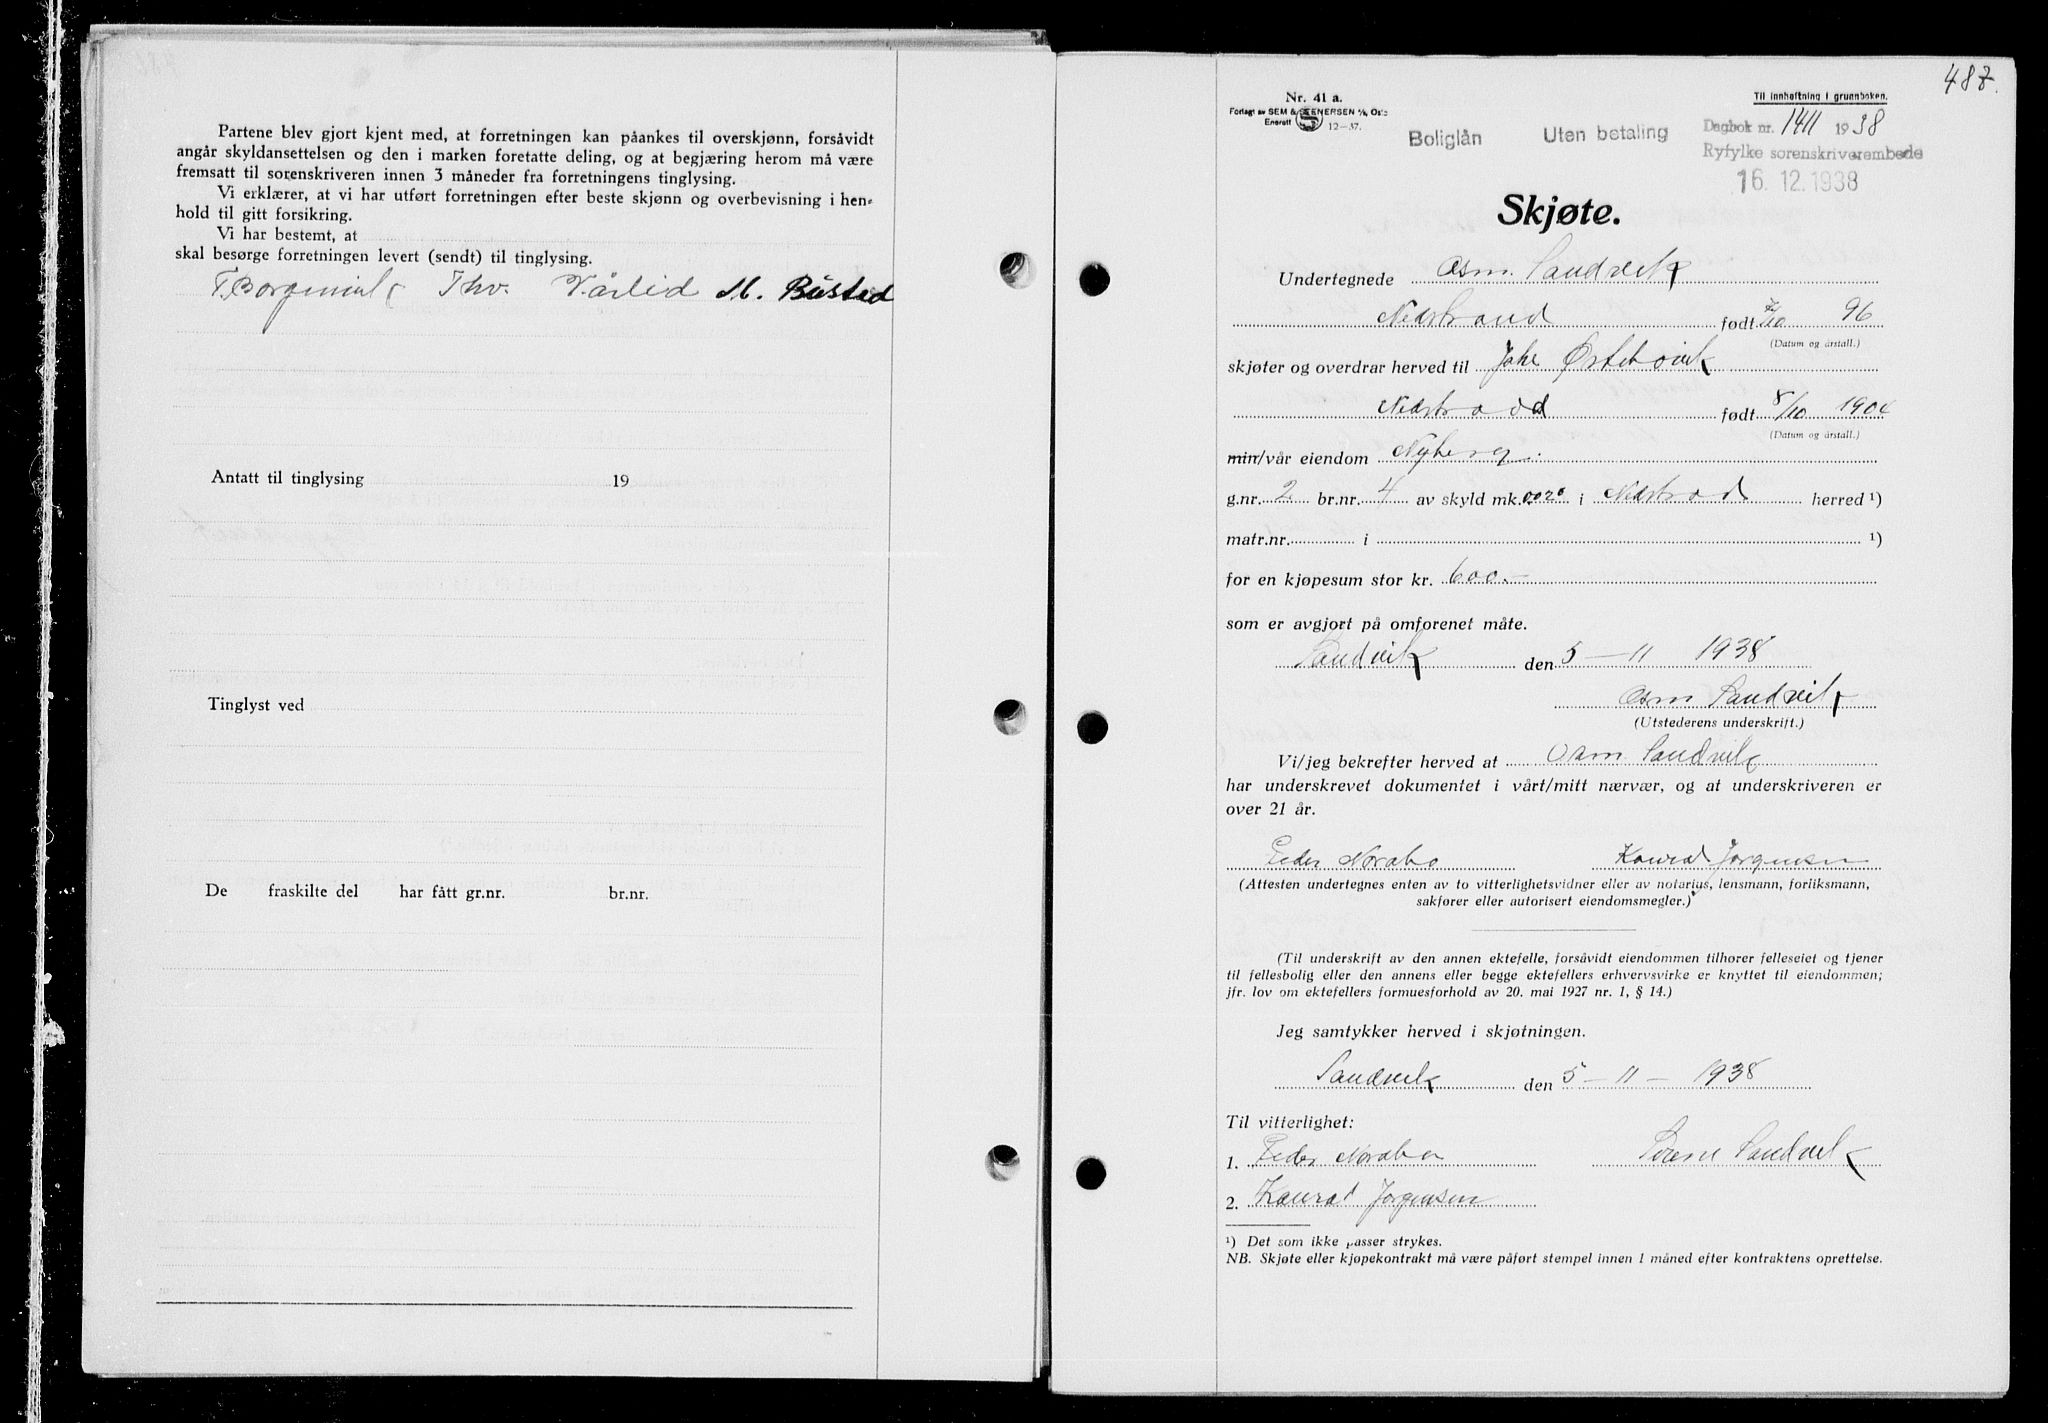 Partene blev gjort kjent med, at forretningen kan påankes til overskjønn, forsåvidt
angår skyldansettelsen og den i marken foretatte deling, og at begjæring herom må være
fremsatt til sorenskriveren innen 3 måneder fra forretningens tinglysing.
Vi erklærer, at vi har utført forretningen efter beste skjønn og overbevisning i hen-
hold til gitt forsikring.
Vi har bestemt, at
skal besørge forretningen levert (sendt) til tinglysing.
Thv. Vårlid M. Busted
Antatt til tinglysing 19
Tinglyst ved
De fraskilte del har fått gr.nr. br.nr.
487.
Nr. 41 a.
Forlagt av SEM & STENERSEN A/S, Oslo
Enerett 12-37.
Til innheftning i grunnboken.
Boliglån Uten betaling
Dagbok nr. 1411 1938
Ryfylke sorenskriverembede
16. 12. 1938
Skjøte.
Undertegnede Osm. Sandvik
Nedstrand født 7/10 96
(Datum og årstall.)
skjøter og overdrar herved til Østebøvik
Nedstrand født 8/10 1904
(Datum og årstall.)
min/vår eiendom Nyberg.
g.nr. 2 br.nr. 4 av skyld mk. 0.020 i Nedstrand herred ¹)
matr.nr. i ¹)
for en kjøpesum stor kr. 600.-
som er avgjort på omforenet måte.
Sandvik den 5-11 1938
Osm Sandvik
(Utstederens underskrift.)
Vi/jeg bekrefter herved at Osm. Sandvik
har underskrevet dokumentet i vårt/mitt nærvær, og at underskriveren er
over 21 år.
Peder Norabo Konrad Jorgensen
(Attesten undertegnes enten av to vitterlighetsvidner eller av notarius, lensmann, forliksmann,
sakfører eller autorisert eiendomsmegler.)
(Til underskrift av den annen ektefelle, forsåvidt eiendommen tilhører felleseiet og tjener
til fellesbolig eller den annens eller begge ektefellers erhvervsvirke er knyttet til eiendommen;
jfr. lov om ektefellers formuesforhold av 20. mai 1927 nr. 1, § 14.)
Jeg samtykker herved i skjøtningen.
Sandvik den 5-11- 1938
Til vitterlighet:
1. Peder Norabo Sandvik
2. Konrad Jorgensen
¹) Det som ikke passer strykes.
NB. Skjøte eller kjøpekontrakt må være påført stempel innen 1 måned efter kontraktens oprettelse.